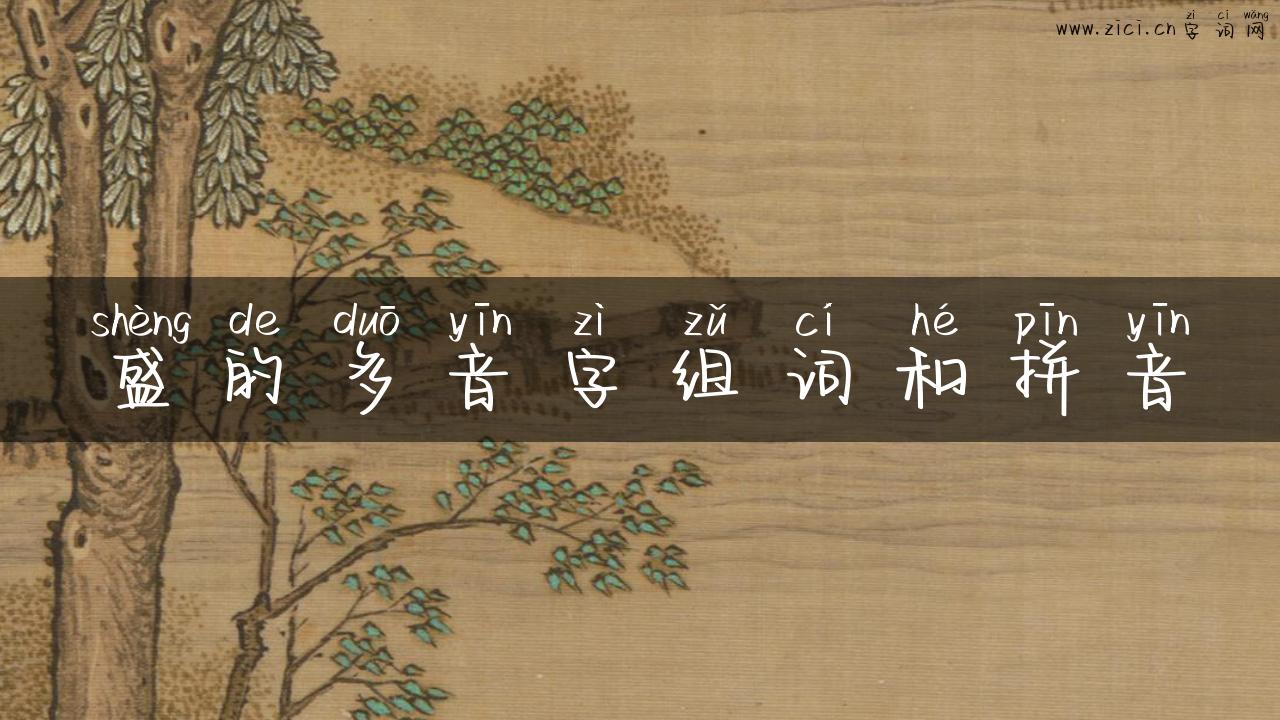 zì cí wǎng
www.zici.cn 字词网
shèng de duō yīn zì zǔ cí hé pīn yīn
盛的多音字组词和拼音